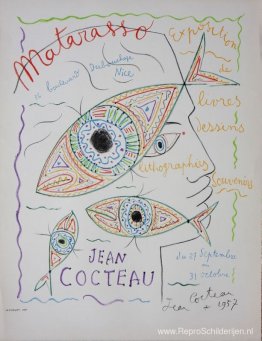 Matarasso
Exposition
de
livres
dessins
lithographies
Souvenirs
boulevard Dubouchage
Nice
JEAN
COCTEAU
du 27 Septembre
au
31 octobre
Jean Cocteau
1957
www.ReproSchilderijen.nl